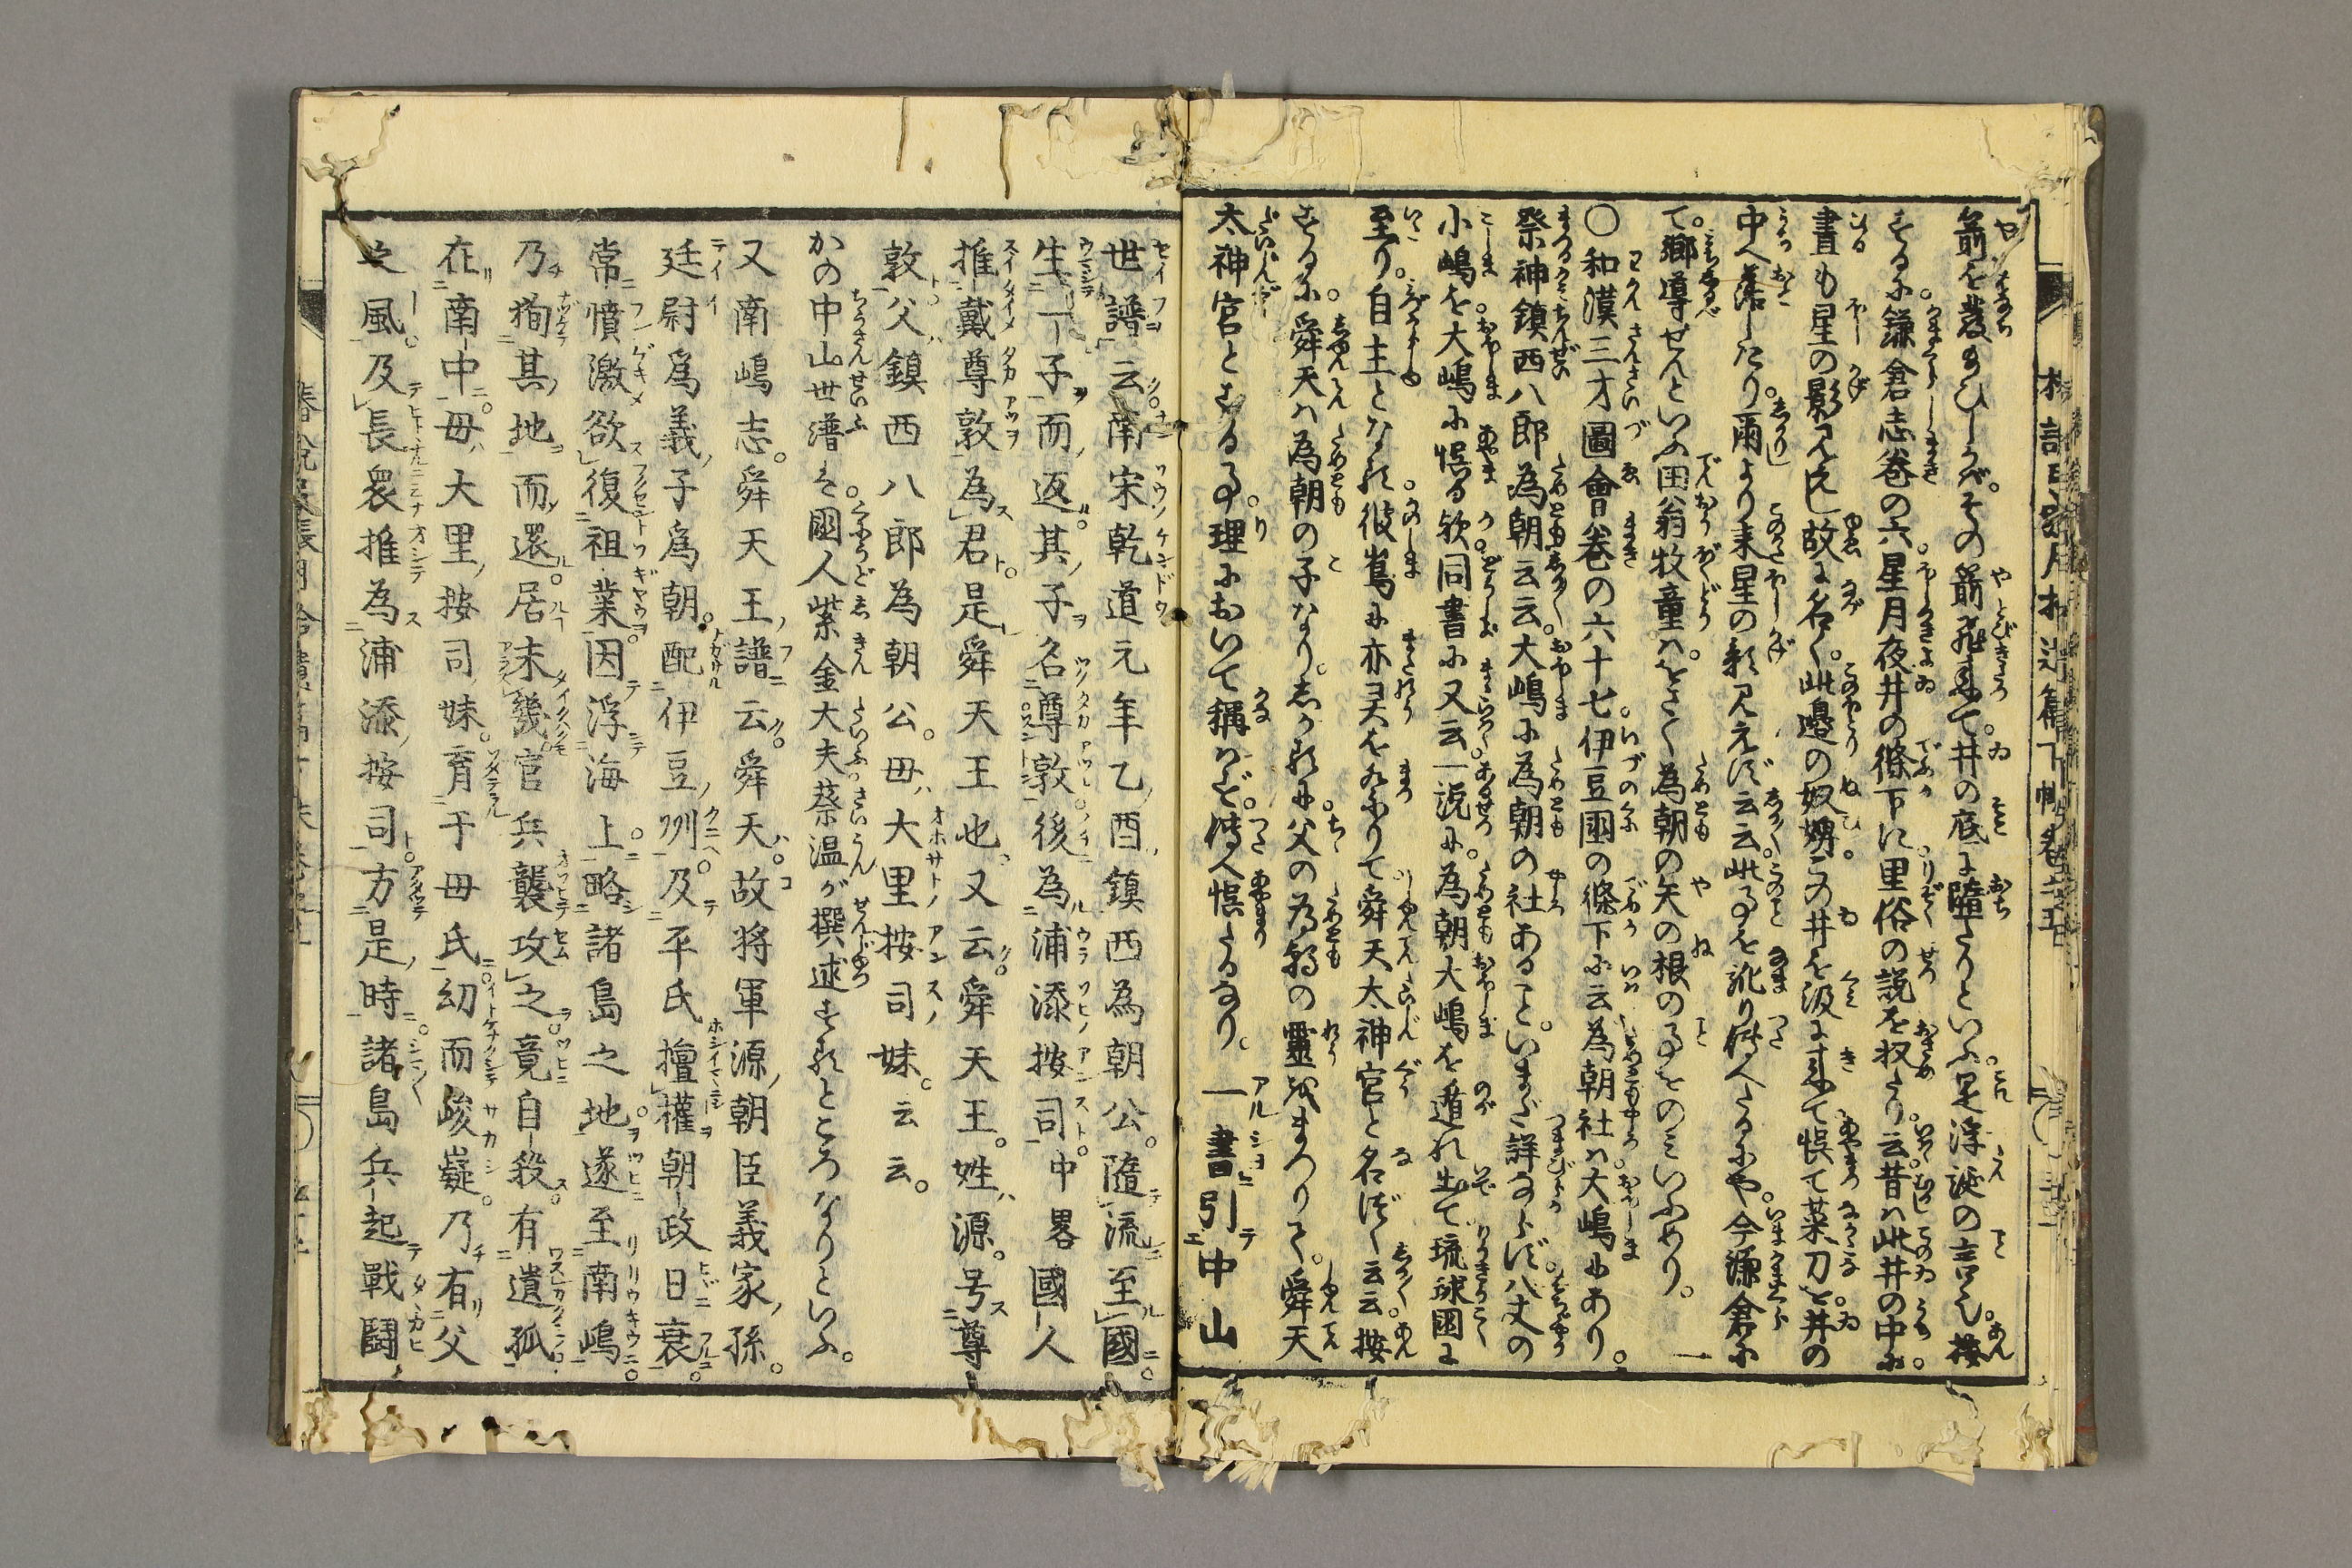 箭を發給ひしが。その箭飛來て。井の底に墮たりといふ。是浮誕の言也。按
ずるに。鎌倉志卷の六。星月夜井の條下に。里俗の說を収たり。云。昔は此井の中に。
晝も星の影見ゆ。故に名く。此邉の奴婢。この井を汲に來て悞て菜刀を井の
中へ落したり。爾より来星の影見えず云云。此事を訛り傳へたるにや。今鎌倉に
て。鄉導せんといふ田翁牧童は。をさ〳〵為朝の矢の根の事をのみいふめり。
〇和漢三才圖會卷の六十七。伊豆國の條下に云為朝社は大嶋にあり。一
祭神鎮西八郎為朝云云。大嶋に為朝の社あること。いまだ詳ならず。八丈の
小嶋を。大嶋に悞る欤。同書に又云。一說に。為朝大嶋を遁れ出て琉球國に
至り。自主となれ。彼嶌に亦灵を祭りて舜天太神宮と名づく云云。按
ずるに。舜天は為朝の子なり。しかるに。父の為朝の靈を祭りて。舜天
太神宮とする事。理において稱はず。傳へ悞るなり。一書引中山
世譜云。南宋乾道元年乙酉。鎮西為朝公。隨流至國。
生一子而返。其子名尊敦。後為浦添按司。中畧國人
推戴尊敦為君。是舜天王也。又云。舜天王。姓源。号尊
敦。父鎮西八郎為朝公。毋大里按司妹。云云。
かの中山世譜は。國人紫金大夫蔡温が撰述する所ところなりといふ。
又南嶋志。舜天王譜云。舜天。故將軍源朝臣義家孫。
廷尉爲義子爲朝。配伊豆州。及平氏擅權朝政日衰。
常憤激欲復祖業。因浮海上。略諸島之地。遂至南嶋。
乃狥其地而還居。未幾。官兵襲攻之。竟自殺。有遺孤
在南中。毋大里按司妹。育于毋氏。幼而峻嶷。乃有父
之風。及長衆推為浦添按司。方是時。諸島兵起戰鬪。